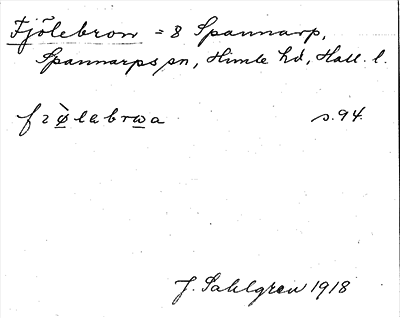 Fjölebron = 8 Spannarp,
Spannarps sn, Himle hd, Hall. l.
fꞮø̀lebrωa s. 94.
J. Sahlgren 1918